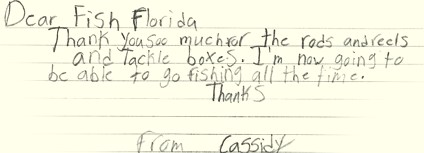 Dear Fish Florida
Thank you soo much for the rods and reels
and Tackle boxes. I'm now going to
be able to go fishing all the time.
Thanks
From Cassidy